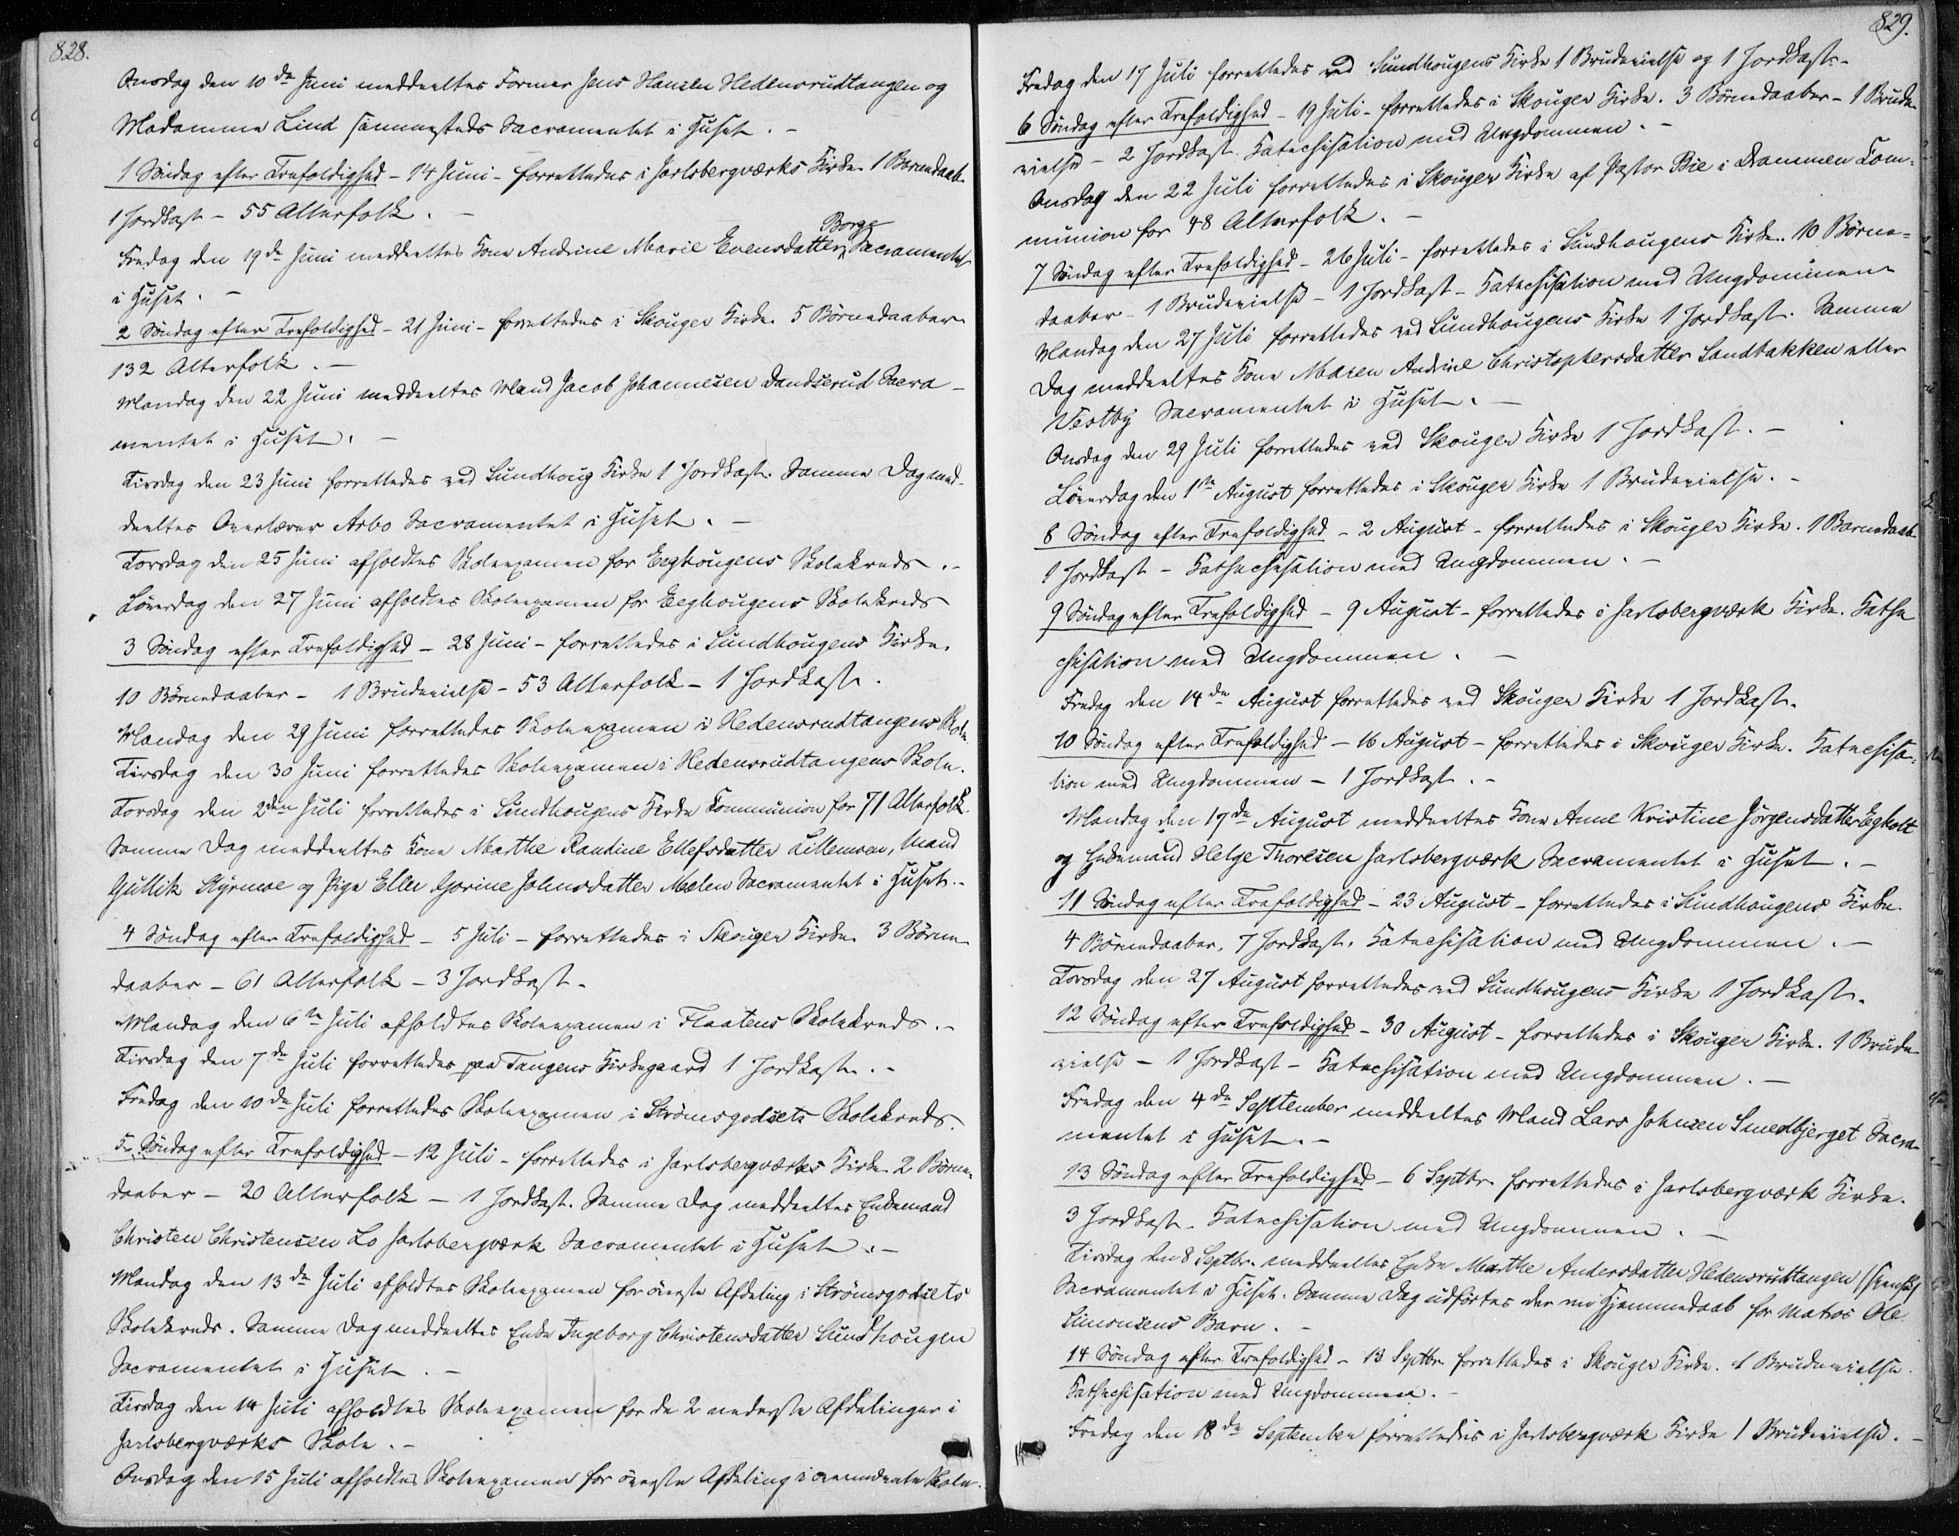 828.
Onsdag den 10de Juni meddeeltes Former Jens Hansen Hedensrudtangen og
Madamme Lind sammesteds Sacramentet i Huset. -
1 Søndag efter Trefoldighed - 14 Juni - forrettedes i Jarlsbergværks Kirke. 1 Barnedaab.
1 Jordkast - 55 Alterfolk. -
Borge
Fredag den 19de Juni meddeeltes Kone Andrine Marie Evensdatter, Sacramentet
i Huset. -
2 Søndag efter Trefoldighed - 21 Juni - forrettedes i Skouger Kirke 5 Børnedaaber
132 Alterfolk. -
Mandag den 22 Juni meddeeltes Mand Jacob Johannesen Dandserud Sacra-
mentet i Huset. -
Tirsdag den 23 Juni forrettedes ved Sundhoug Kirke 1 Jordkast. Samme Dag med-
deeltes Overlærer Arbo Sacramentet i Huset. -
Torsdag den 25 Juni afholdtes Skoleexamen for Eeghougens Skolekreds. -
Løverdag den 27 Juni afholdtes Skoleexamen for Eeghougens Skolekreds
3 Søndag efter Trefoldighed - 28 Juni - forrettedes i Sundhougens Kirke.
10 Børnedaaber - 1 Brudevielse - 53 Alterfolk - 1 Jordkast.
Mandag den 29 Juni forrettedes Skoleexamen i Hedensrudtangens Skole.
Tirsdag den 30 Juni forrettedes Skoleexamen i Hedensrudtangens Skole.
Torsdag den 2den Juli forrettedes i Sundhougens Kirke Communion for 71 Alterfolk.
Samme Dag meddeeltes Kone Marthe Randine Ellefsdatter Lillemoen, Mand
Gullik Styrmoe og Pige Elle Gorine Johnsdatter Moelen Sacramentet i Huset. -
4 Søndag efter Trefoldighed - 5 Juli - forrettedes i Skouger Kirke 3 Børne-
daaber - 61 Alterfolk - 3 Jordkast.
Mandag den 6te Juli afholdtes Skoleexamen i Flaatens Skolekreds. -
Tirsdag den 7de Juli forrettedes paa Tangens Kirkegaard 1 Jordkast. -
Fredag den 10de Juli forrettedes Skoleexamen i Strømsgodsets Skolekreds.
5 Søndag efter Trefoldighed - 12 Juli - forrettedes i Jarlsbergværks Kirke 2 Børne-
daaber - 20 Alterfolk - 1 Jordkast. Samme Dag meddeeltes Enkemand
Christen Christensen Lo Jarlsbergværk Sacramentet i Huset. -
Mandag den 13de Juli afholdtes Skoleexamen for øverste Afdeling i Strømsgodsets
Skolekreds. Samme Dag meddeeltes Enke Ingeborg Christensdatter Sundhougen
Sacramentet i Huset. -
Tirsdag den 14 Juli afholdtes Skoleexamen for de 2 nederste Afdelinger i
Jarlsbergværks Skole. -
Onsdag den 15 Juli afholdtes Skoleexamen for øverste Afdeling i ovennævnte Skole.
829.
Fredag den 17 Juli forrettedes ved Sundhougens Kirke 1 Brudevielse og 1 Jordkast. -
6 Søndag efter Trefoldighed - 19 Juli - forrettedes i Skouger Kirke. 3 Børnedaaber - 1 Brude-
vielse - 2 Jordkast. Katechisation med Ungdommen. -
Onsdag den 22 Juli forrettedes i Skouger Kirke af Pastor Bie i Drammen Com-
munion for 48 Alterfolk. -
7 Søndag efter Trefoldighed - 26 Juli - forrettedes i Sundhougens Kirke. 10 Børne-
daaber - 1 Brudevielse - 1 Jordkast - Katechisation med Ungdommen
Mandag den 27 Juli forrettedes ved Sundhougens Kirke 1 Jordkast. Samme
Dag meddeeltes Kone Maren Andrine Christophersdatter Sandbakken eller
Vestby Sacramentet i Huset. -
Onsdag den 29 Juli forrettedes ved Skouger Kirke 1 Jordkast. -
Løverdag den 1ste August forrettedes i Skouger Kirke 1 Brudevielse. -
8 Søndag efter Trefoldighed - 2 August - forrettedes i Skouger Kirke. 1 Barnedaab
1 Jordkast - Kathechisation med Ungdommen. -
9 Søndag efter Trefoldighed - 9 August - forrettedes i Jarlsbergværk Kirke. Kathe
chisation med Ungdommen. -
Fredag den 14de August forrettedes ved Skouger Kirke 1 Jordkast.
10 Søndag efter Trefoldighed - 16 August - forrettedes i Skouger Kirke. Katechisa-
tion med Ungdommen - 1 Jordkast. -
Mandag den 17de August meddeeltes Kone Anne Kristine Jørgensdatter Egholt
og Enkemand Helge Thoresen Jarlsbergværk Sacramentet i Huset. -
11 Søndag efter Trefoldighed - 23 August - forrettedes i Sundhougens Kirke.
4 Børnedaaber, 7 Jordkast. Katechisation med Ungdommen. -
Torsdag den 27 August forrettedes ved Sundhougens Kirke 1 Jordkast.
12 Søndag efter Trefoldighed - 30 August - forrettedes i Skouger Kirke. 1 Brude-
vielse - 1 Jordkast - Katechisation med Ungdommen. -
Fredag den 4de September meddeeltes Mand Lars Johnsen Smedbjerget Sacra-
mentet i Huset. -
13 Søndag efter Trefoldighed - 6 Septbr. forrettedes i Jarlsbergværk Kirke.
3 Jordkast. Katechisation med Ungdommen. -
Tirsdag den 8 Septbr. meddeeltes Enke Marthe Andersdatter Hedensrudtangen
Sacramentet i Huset. Samme Dag udførtes der en Hjemmedaab for Matros Ole
Simonsens Barn. -
14 Søndag efter Trefoldighed - 13 Septbr. forrettedes i Skouger Kirke. 1 Brudevielse.
Kathechisation med Ungdommen. -
Fredag den 18de September forrettedes i Jarlsbergværk Kirke 1 Brudevielse. -